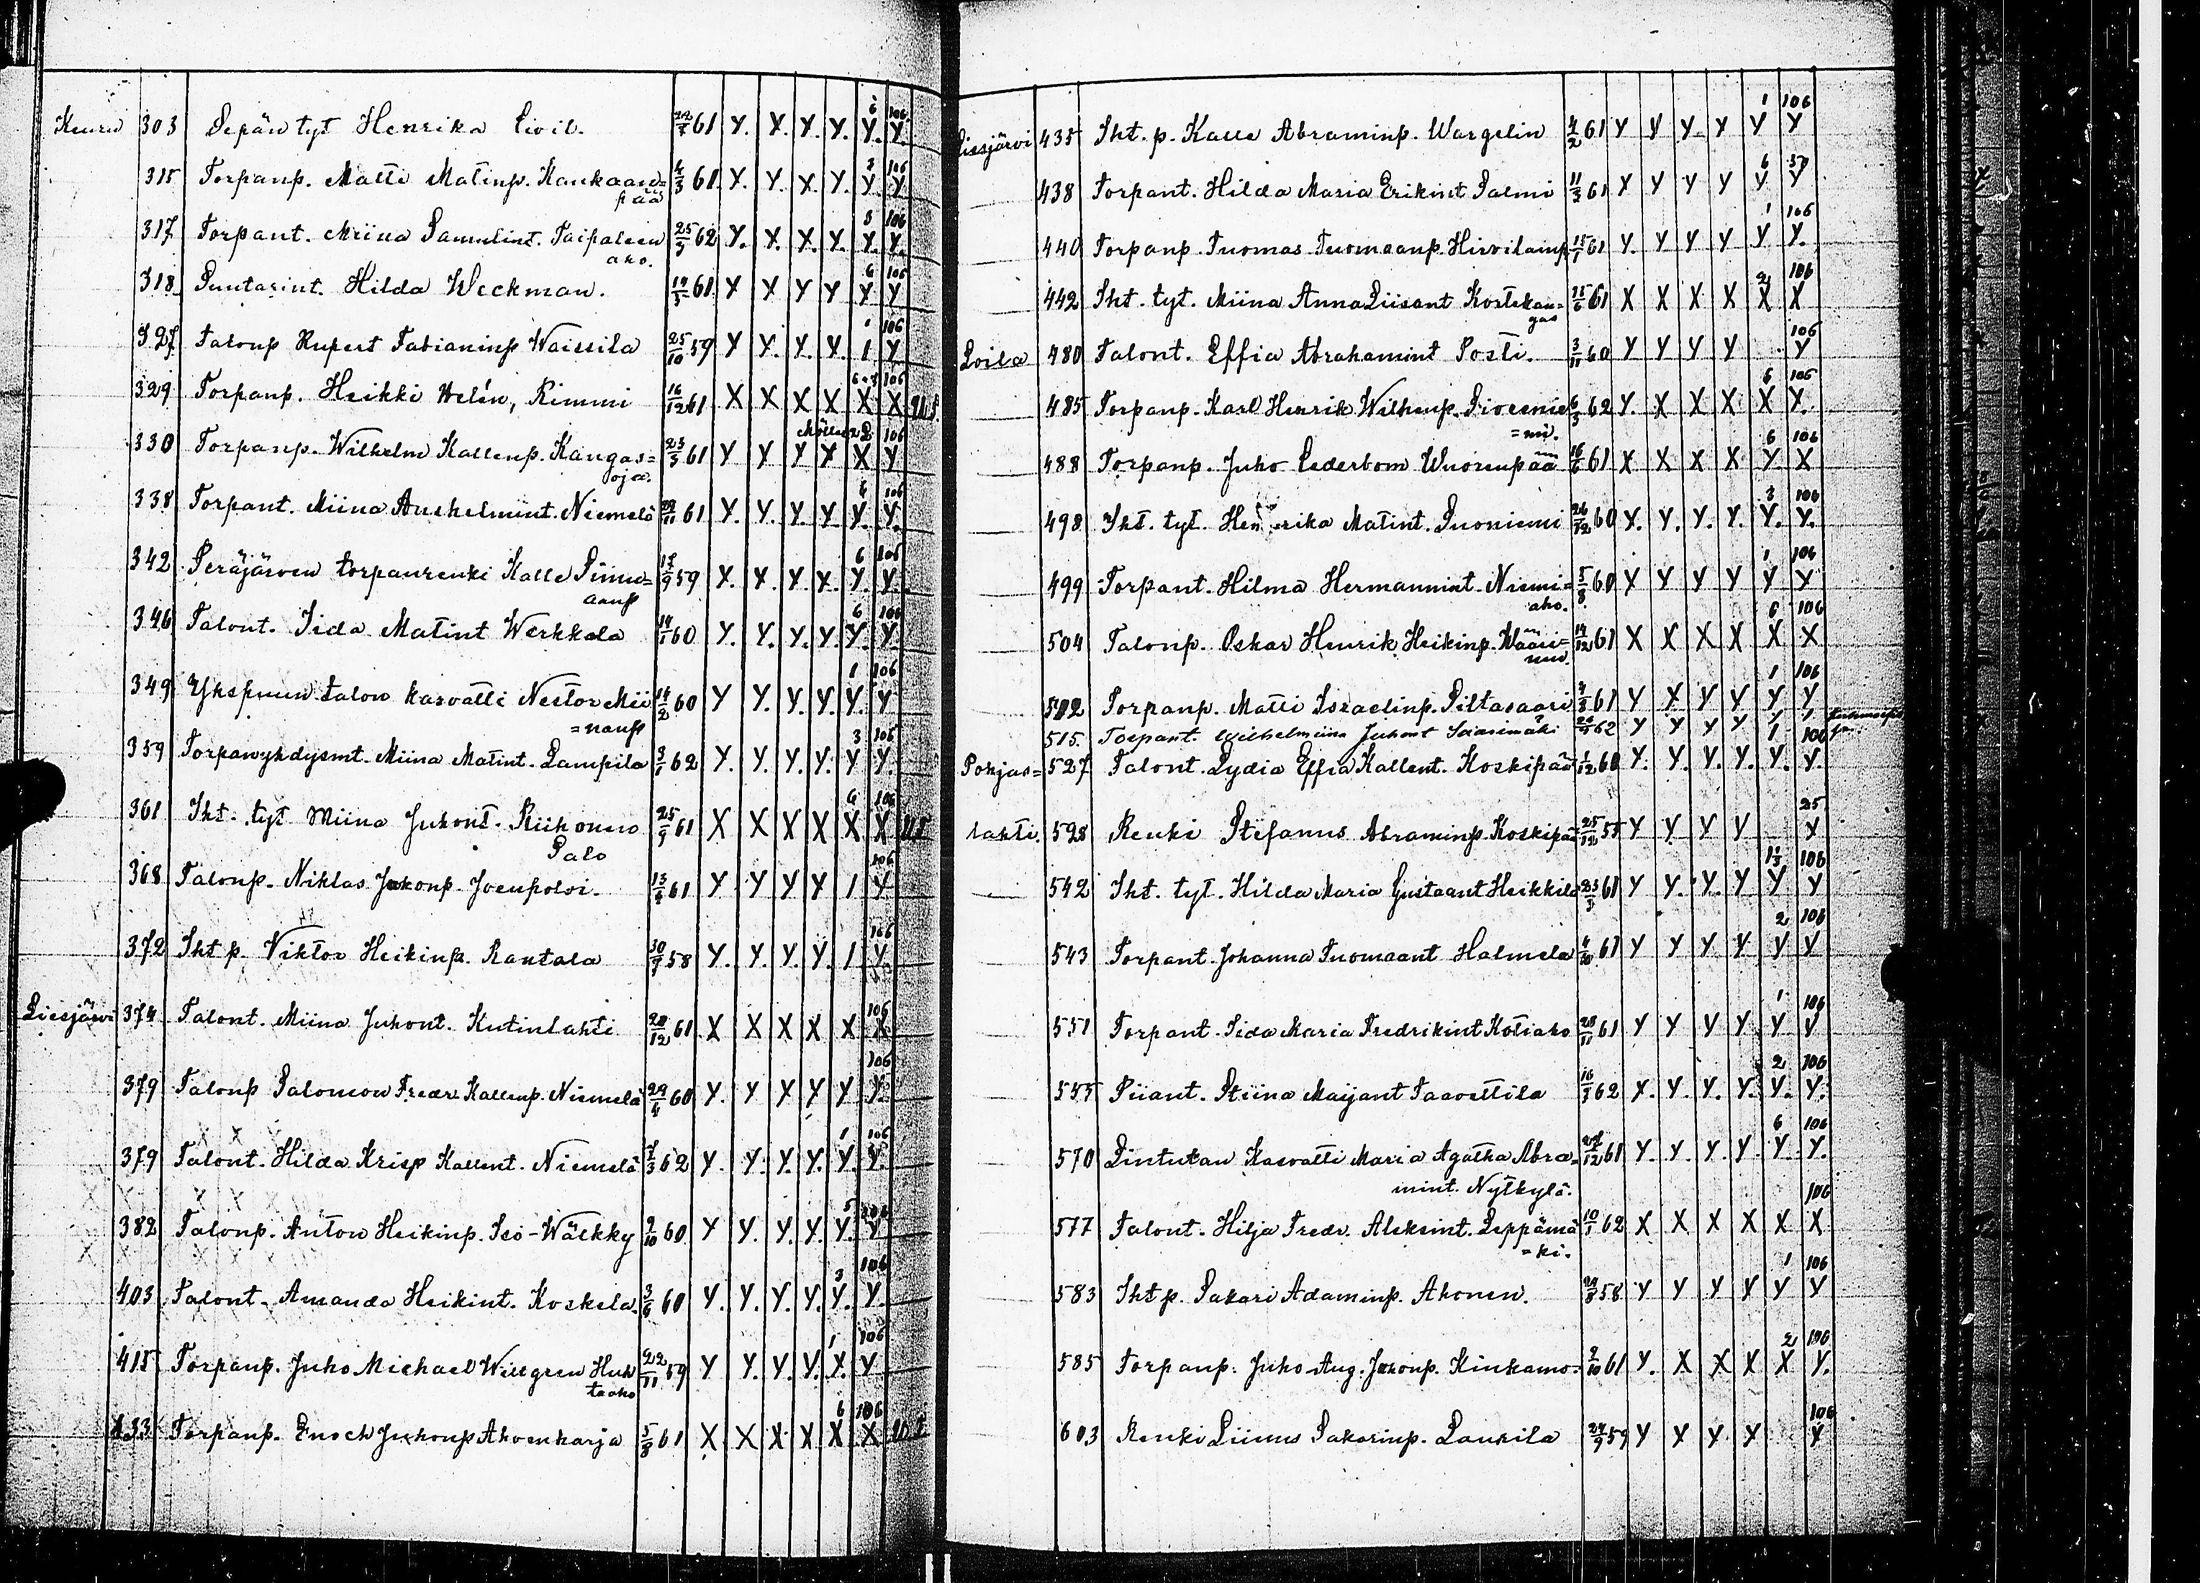 Keuru 303 Sepän tyt Henrika Civil. 22/7 61 Y. X. Y. Y. Y. Y. 6 106
315 Torpanp. Matti Matinp. Kaukaan= 4/3 61 Y. Y. X. Y. Y. Y. 3 106
pää
317 Torpant. Miina Samulint. Taipaleen 25/3 62 Y. X. X. Y. Y. Y. 106
aho.
318 Puntarint. Hilda Weckman. 61 Y X Y Y Y Y 6 106
327 Talonp Rupert Fabianinp Waissila 25/10 59 Y Y. Y. Y. 1 Y 106
329 Torpanp. Heikki Welén, Kimmi 16/12 61 X X X X X X 106
330 Torpanp. Wilhelm Kallenp. Kangas= 23/3 61 Y Y Y Y X Y 106
oja.
338 Torpant. Miina Anshelmint. Niemelä 61 Y. Y. Y. Y. Y. Y. 106
342 Peräjärven torpanrenki Kalle Simu= 17/9 59 X. X. X. X. Y. Y. 6 106
aanp
346 Talont. Iida Matint Werkkala 60 Y. Y. Y. Y. Y. Y. 6 106
349 Ykspuun talon kasvatti Nestor Mii 14/2 60 Y Y. Y. Y. Y. Y 1 106
=nanp
359 Torpanyhdysmt. Miina Matint. Lampila 3/1 62 Y. Y. Y. Y. Y Y. 3 106
361 Iht. tyt Miina Juhont. Riihonen 25/9 61 X X X X X X 6 106
Palo
368 Talonp. Niklas Jakonp. Joenpolvi. 61 Y Y Y Y 1 Y. 106
372 Iht p. Viktor Heikinp. Rantala 30/7 58 Y. Y. Y. Y. 1 Y. 106
Liesjärvi 374 Talont. Miina Juhont. Kutinlahti 20/12 61 X X X X X X 106
379 Talonp Salomon Fredr. Kallenp. Niemelä 29/4 60 Y. Y Y Y Y Y. 106
379 Talont. Hilda Krisp Kallent. Niemelä 62 Y. Y. Y. Y. Y. Y. 1 106
382 Talonp. Anton Heikinp. Iso-Wälkky 2/10 60 Y Y. Y. Y. Y. Y 5 106
403 Talont. Amanda Heikint. Koskela. 60 Y. Y. Y. Y. Y. Y. 3 106
415 Torpanp. Juho Michael Willgren Huh 22/11 59 Y Y. Y. Y. X. Y 1 106
taaho
433 Torpanp. Enoch Juhonp Ahvenharja 5/8 61 X X X X X X 6 106
Liesjärvi 435 Iht. p. Kalle Abraminp. Wargelin 4/2 61 Y Y Y Y Y Y 1 106
438 Torpant. Hilda Maria Erikint Salmi 11/3 61 Y Y Y Y Y Y 6
440 Torpanp. Tuomas Tuomaanp. Hirvilamp 61 Y. Y Y Y Y Y. 1 106
442 Iht. tyt. Miina Anna Liisant Kostekan= 15/6 61 X X X X X X 2 106
gas
Loila 480 Talont. Effia Abrahamint Posti. 3/11 60 Y Y Y Y Y 106
485 Torpanp. Karl Henrik Wilhenp. 62 Y. X X X X Y. 6 106
=mi.
488 Torpanp. Juho Cederbom Wuorenpää 16/6 61 X X X X Y X 6 106
498 Iht. tyt. Henrika Matint. Suoniemi 26/12 60 Y. Y. Y. Y. Y. Y. 3 106
499 Torpant. Hilma Hermannint Niemi= 5/8 60 X Y Y Y Y Y 1 106
aho.
504 Talonp. Oskar Henrik Heikinp. Wääri= 14/12 61 X X X X X X 6 106
512 Torpanp. Matti Israelinp. Piltasaari 61 Y X Y Y Y Y 1 106
515. Torpant. Wilhelmiina Juhont Saarimäki 62 Y Y Y Y 1 106
Pohjas= 527 Talont. Lydia Effia Kallent. Koskipää 1/12 60 Y. Y. Y. Y. Y. Y.
lahti. 528 Renki Stefanus Abraminp. Koskipää 25/12 55 Y Y Y Y Y 25
542 Iht. tyt. Hilda Maria Gustaant Heikkilä 25/3 61 Y Y. Y. Y Y Y 106
543 Torpant. Johanna Tuomaant Halmela 4/10 61 Y Y Y Y Y Y 2 106
551 Torpant. Iida Maria Fredrikint Kotiaho 28/11 61 Y Y Y Y. Y Y 1 106
555 Piiant. Stiina Maijant Taavettila 16/3 62 Y. Y. Y. Y. Y. Y. 2 106
570 Lintutan Kasvatti Maria Agatha Abra= 61 Y. Y. Y. Y. Y. Y. 6 106
mint. Nytkylä.
577 Talont. Hilja Fredr. Aleksint. Leppämä 10/1 62 X X X X X X 106
=ki.
583 Iht p. Sakari Adaminp. Ahonen. 58 Y Y Y Y Y Y 1 106
585 Torpanp. Juho Aug. Jakonp. Kinkamo= 2/10 61 Y. X X X X Y. 2 106
603 Renki Liinus Sakarinp. Laurila 24/9 59 Y X Y Y Y 106